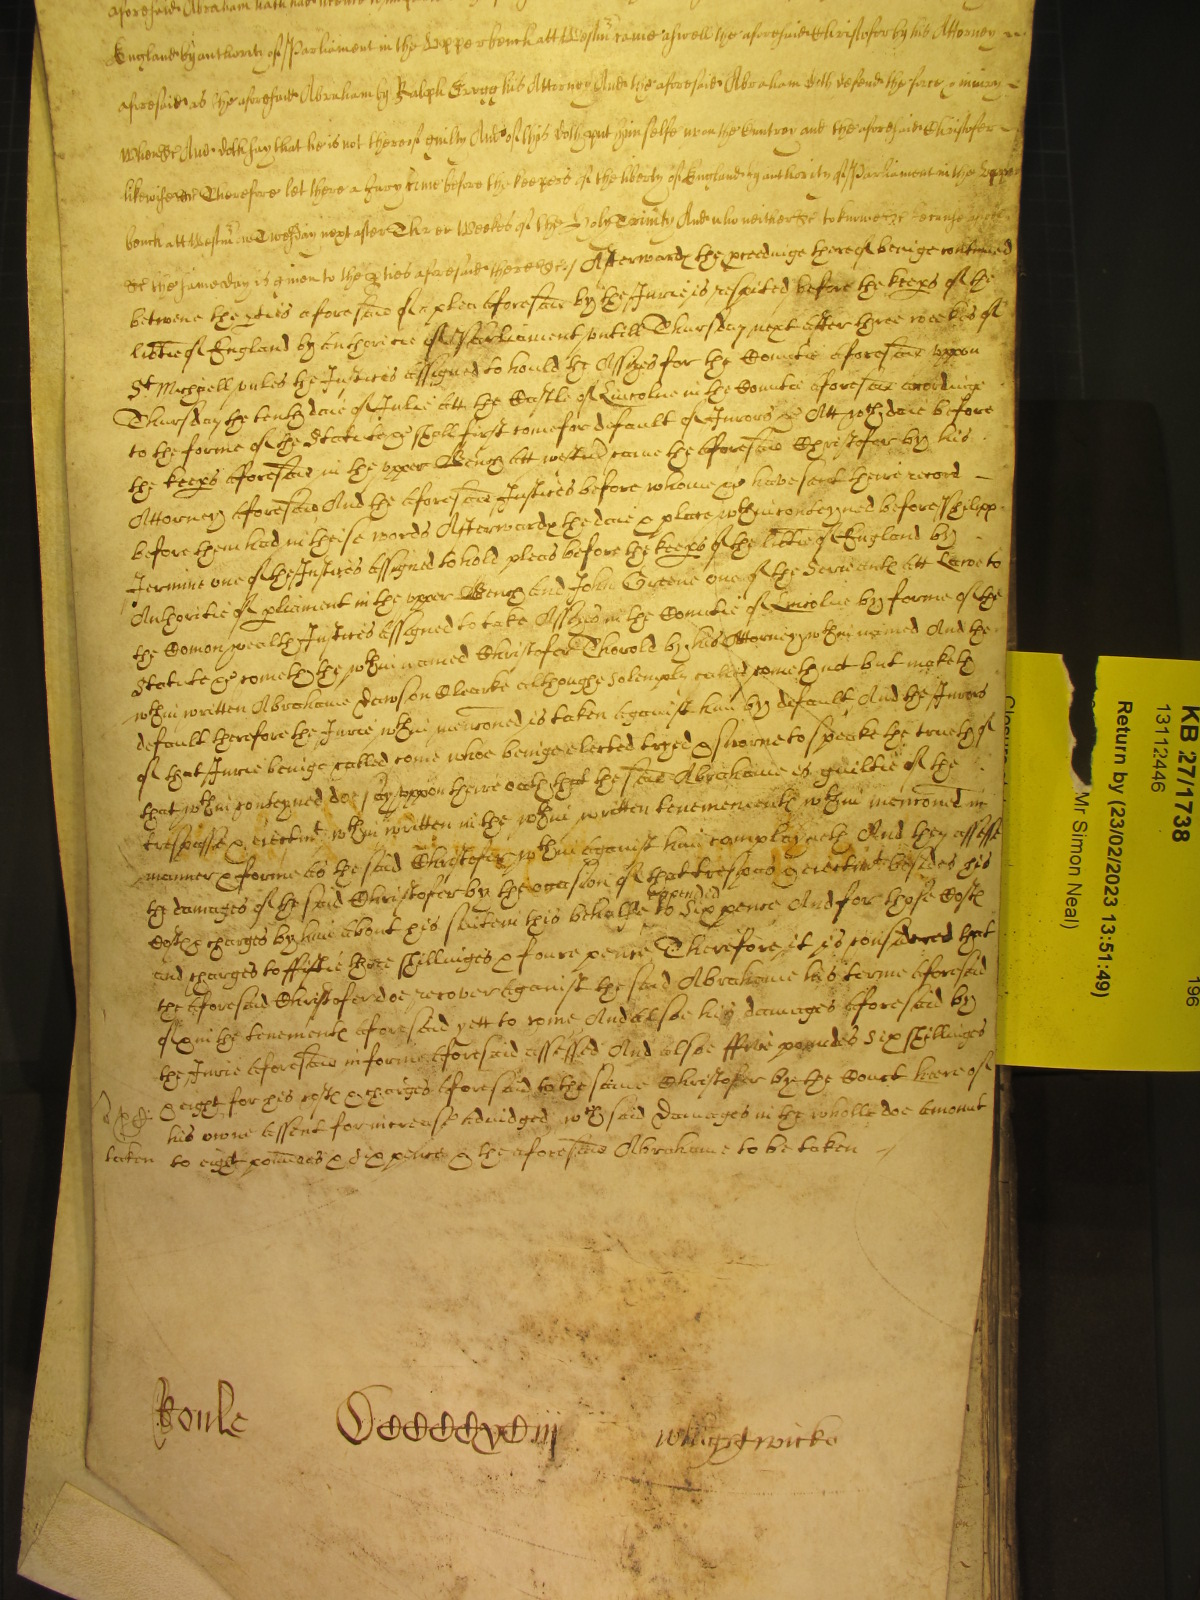 aforesaid Abraham hath had
England by authoritie of Parliament in the Upper bench att Westm̃ came aswell the aforesaid Christofer by his Attorney
aforesaid as the aforesaid Abraham by Ralph Gregg his Attorney And the aforesaid Abraham doth defend the force & iniury
When &c And doth say that he is not thereof guilty And of this doth put himselfe upon the Cuntrey and the aforesaid Christofer
likewise &c Therefore let there a Jury come before the keepers of the liberty of England by authority of Parliament in the Upper
bench att Westm̃ on Twesday next after Three Weekes of the Holy Trinity And who neither &c to knowe &c because aswell
&c the same day is given to the p̃ties aforesaid there &c / Afterward the proceedinge thereof beinge continued
betwene the p̃ties aforesaid of a plea aforesaid by the Jurie is respited before the keeps of the
lib̃tie of England by authoritie of Parliament untill Thursday next after three weekes of
St Michaell unles the Justices assigned to hould the Assizes for the Countie aforesaid uppon
Thursday the tenth daie of Julie att the Castle of Lincolne in the Countie aforesaid accordinge
to the forme of the Statute &c shall first come for default of Jurors &c Att wch daie before
the keeps aforesaid in the upper Bench att westm̃ came the aforesaid Christofer by his
Attorney aforesaid And the aforesaid Justices before whome &c have sent theire record
before them had in theise words Afterward the daie & place wthin conteyned before Philipp
Jermine one of the Justices assigned to hold pleas before the keeps of the lib̃tie of England by
Authoritie of p̃liament in the upper Bench and John Greene one of the Serieants att Lawe to
the Comonwealth Justices assigned to take Assizes in the Countie of Lincolne by forme of the
Statute &c cometh the wthin named Christofer Thorold by his Attorney wthin named And the
wthin written Abrahame Dawson Clearke althoughe solemply called cometh not but maketh
default therefore the Jurie wthin menc̃oned is taken against him by default And the Jurors
of that Jurie beinge called come whoe beinge elected tryed & sworne to speake the trueth of
that wthin conteyned doe say uppon theire oath that the said Abrahame is guiltie of the
trespasse & eiectmt wthin written in the wthin written tenements wthin menc̃oned in
manner & forme as the said Christofer wthin against him complayneth And they assesse
the damages of the said Christofer by the occasion of that trespas & eiectmt besides his
Costs & charges by him about his suite in this behalfe expended to Six pence And for those Costs
and charges to fiftie three shillinges & foure pence Therefore it is considered that
the aforesaid Christofer doe recover against the said Abrahame his terme aforesaid
of & in the tenements aforesaid yett to come And alsoe his damages aforesaid by
the Jurie aforesaid in forme aforesaid assessed And alsoe ffive poundes Six shillinges
& eight for his costs & charges aforesaid to the same Christofer by the Court heere of
his owne assent for increase adiudged wch said damages in the wholle doe amount
taken to eight poundes & six pence & the aforesaid Abrahame to be taken
Roule
Wightwicke
KB 27/1738
13112446
Return by (23/02/2023 13:51:49)
Mr Simon Neal)
196